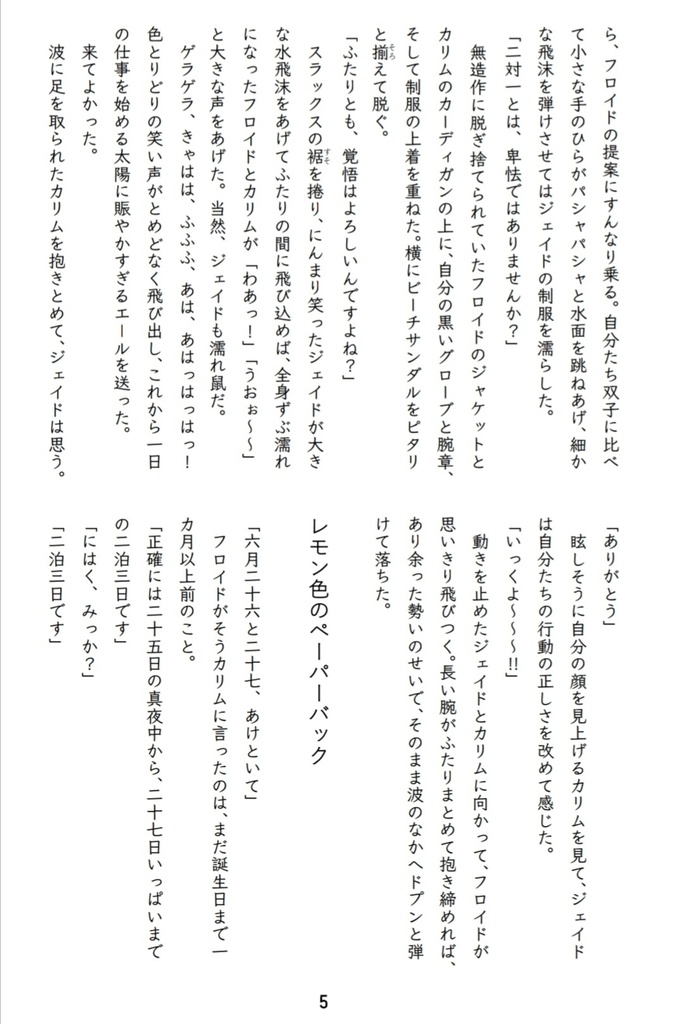 ら、フロイドの提案にすんなり乗る。自分たち双子に比べ
て小さな手のひらがパシャパシャと水面を跳ねあげ、細か
な飛沫を弾けさせてはジェイドの制服を濡らした。
「二対一とは、卑怯ではありませんか？」
　無造作に脱ぎ捨てられていたフロイドのジャケットと
カリムのカーディガンの上に、自分の黒いグローブと腕章、
そして制服の上着を重ねた。横にビーチサンダルをピタリ
と揃えて脱ぐ。
そろ
「ふたりとも、覚悟はよろしいんですよね？」
　スラックスの裾を捲り、にんまり笑ったジェイドが大き
すそ
な水飛沫をあげてふたりの間に飛び込めば、全身ずぶ濡れ
になったフロイドとカリムが「わあっ！」「うおぉ〜〜」
と大きな声をあげた。当然、ジェイドも濡れ鼠だ。
　ゲラゲラ、きゃはは、ふふふ、あは、あはっはっはっ！
色とりどりの笑い声がとめどなく飛び出し、これから一日
の仕事を始める太陽に賑やかすぎるエールを送った。
　来てよかった。
　波に足を取られたカリムを抱きとめて、ジェイドは思う。
「ありがとう」
　眩しそうに自分の顔を見上げるカリムを見て、ジェイド
は自分たちの行動の正しさを改めて感じた。
「いっくよ〜〜〜!!」
　動きを止めたジェイドとカリムに向かって、フロイドが
思いきり飛びつく。長い腕がふたりまとめて抱き締めれば、
あり余った勢いのせいで、そのまま波のなかへドプンと弾
けて落ちた。
レモン色のペーパーバック
「六月二十六と二十七、あけといて」
　フロイドがそうカリムに言ったのは、まだ誕生日まで一
カ月以上前のこと。
「正確には二十五日の真夜中から、二十七日いっぱいまで
の二泊三日です」
「にはく、みっか？」
「二泊三日です」
5